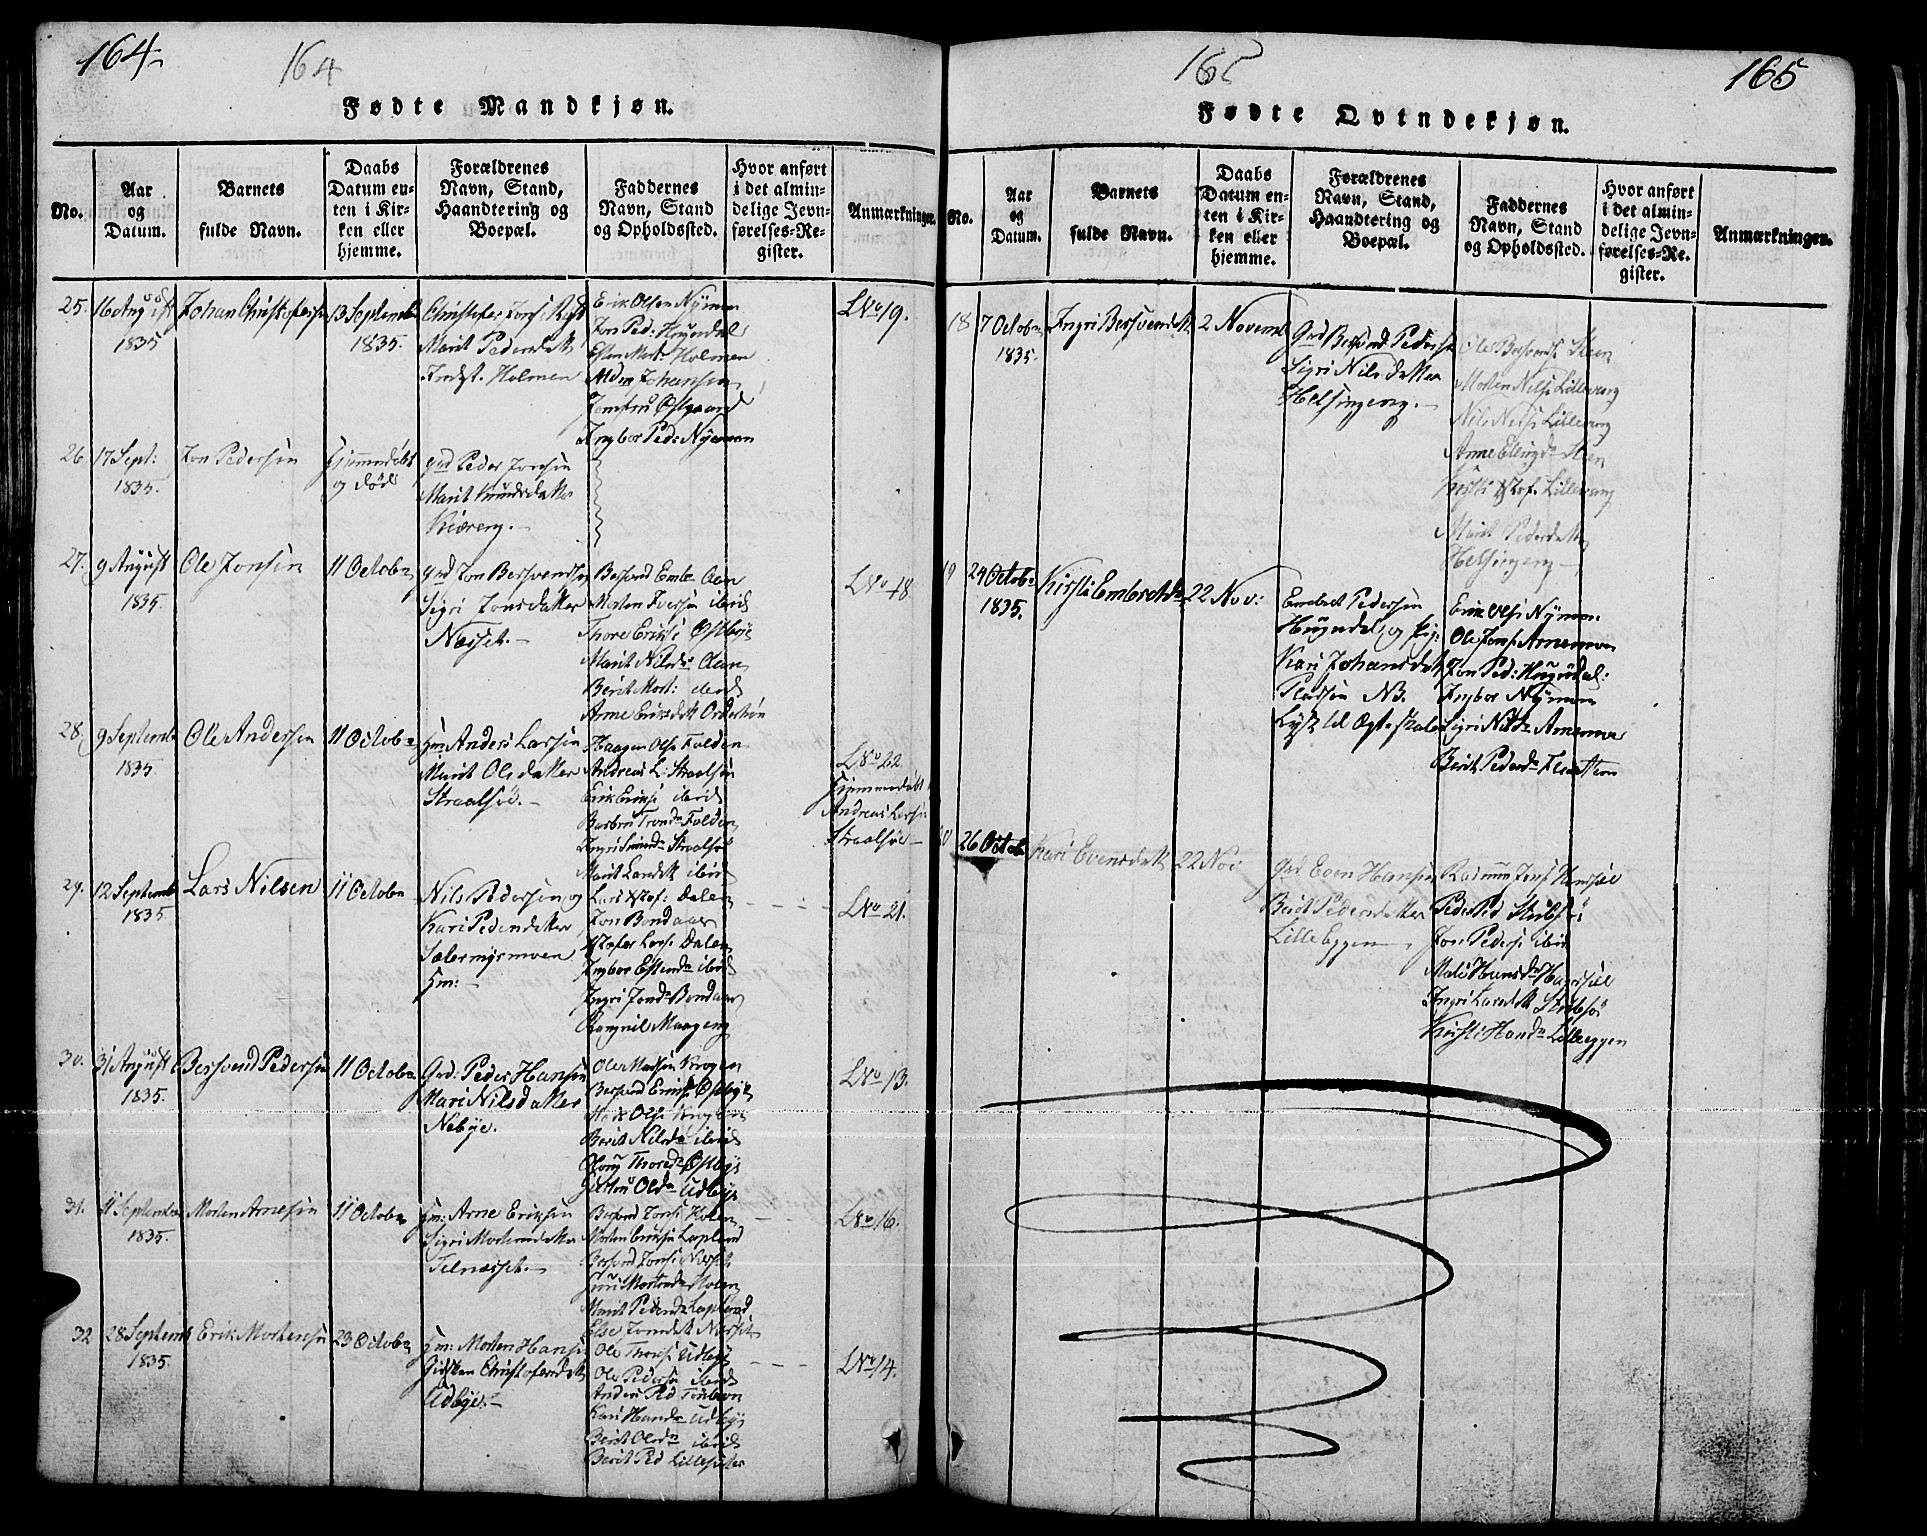 164
164
Fødte Mandkjøn.
No.
Aar
og
Datum.
Barnets
fulde Navn.
Daabs
Datum en-
ten i Kir-
ken eller
hjemme.
Forældrenes
Navn, Stand,
Haandtering og
Boepæl.
Faddernes
Navn, Stand
og Opholdssted.
Hvor anført
i det almin-
delige Jevn-
førelses-Re-
gister.
Anmærkninger.
25.
16 August
1835
Johan Christofersen
13 September
1835.
Christofer Jons:
Marit Pedersdatt
Holmen
Erik Olsen Nymoen
Jon Ped: Hougdal
Esten Mort: Holmen
Johansen
Østgaard
Ingbor Ped: Nymoen
LNo 19.
26.
17 Sept:
1835.
Jon Pedersen
Hjemmedøbt
og død
Grd Peder Jonsen
Marit Knudsdatter
Kiæreng.
27.
9 August
1835.
Ole Jonsen
11 Octobr
Grd Jon Bersvendsen
Sigri Jonsdatter
Næsset.
Bersvend Emb: Aaen
Morten Iversen ibid
Thore Eriks: Østbye
Marit Nilsdr Aaen
Berit Mort: ibid
Arne Eriksdatt
LNo 18
28.
9 Septembr
1835.
Ole Andersen
11 Octobr
Hm: Anders Larsen
Marit Olsdatter
Straalsøe.
Haagen Ols: Folden
Andreas L: Straalsøe
Erik Eriks: ibid
Barbru Trondr Folden
Ingri Straalsøe
Marit Larsdtt ibid
LNo 22
Hjemmedøbt
Andreas Larsen
Straalsøe
29.
12 Septembr
1835
Lars Nilsen
11 Octobr
Nils Pedersen og
Kari Pedersdatter
Sætermyrmoen
Hm:
Lars Dalen
Jon Bondaar
Lars: Dalen
Ingbor Estensdr ibid
Ingri Jonsdr Bondaar
Rangnil Maageng
LNo 21.
30.
31 August
1835.
Bersvend Pedersen
11 Octobr
Grd: Peder Hansen
Mari Nilsdatter
Nebye.
Ole Krogen
Bersvend Eriks: Østbye
Ols: Krogen
Berit Nilsdr ibid
Thoresdr Østbye
Olsdr Udbye
LNo 13.
31.
11 September
1835.
Morten Arnesen
11 Octobr
Hm: Arne Eriksen
Sigri Mortensdatter
Telnesset.
Bersvend Jons: Holen
Morten Eriksen
Bersvend Jons: Næsset
Guri Mortensdr Holen
Marit Pedersdr
Else Jonsdatt Næsset
LNo 16.
32
28 Septembr
1835.
Erik Mortensen
23 Octobr
Hm: Morten Hansen
Gidsken Christofersdatt
Udbye.
Ole Thors: Udbye
Ole Pedersen ibid
Anders Ped
Kari Hansdr Udbye
Berit Olsdr ibid
Berit Ped
LNo 14.
165
165
Fødte Qvindekjøn.
No.
Aar
og
Datum.
Barnets
fulde Navn.
Daabs
Datum en-
ten i Kir-
ken eller
hjemme.
Forældrenes
Navn, Stand,
Haandtering og
Boepæl.
Faddernes
Navn, Stand
og Opholdssted.
Hvor anført
i det almin-
delige Jevn-
førelses-Re-
gister.
Anmærkninger.
18
7 Octobr
1835.
Ingri Bersvendsdatt
2 Novemb
Grd Bersvend Pedersen
Sigri Nilsdatter
Helsingeng.
Ole Bersvends: Steen
Morten Nils: Lillevang
Nils Nils: Lillevang
Anne Steen
Kirsti Lillevang
Marit Pedersdatt
Helsingeng
19
24 Octobr
1835.
Kirsti Embretsdr
22 Nov:
Embret Pedersen
Hougdal, og pig:
Kari Johansdatt
NB.
Erik Ols: Nymoen
Ole Jons: Arnemoe
Jon Ped: Hougdal:
Ingbor Nymoen
Sigri Arnemoe
Berit Pedersdr
20
26 Octob
Kari Evensdatt
22 Nov:
Grd Even Hansen
Berit Pedersdatter
Lilleeggen
Rasmus Jons:
Peder Ped Stubsøe
Jon Peders: ibid
Mali Hansdr
Ingri Larsdtt Stubsøe
Kirsti Hansdr Lilleeggen